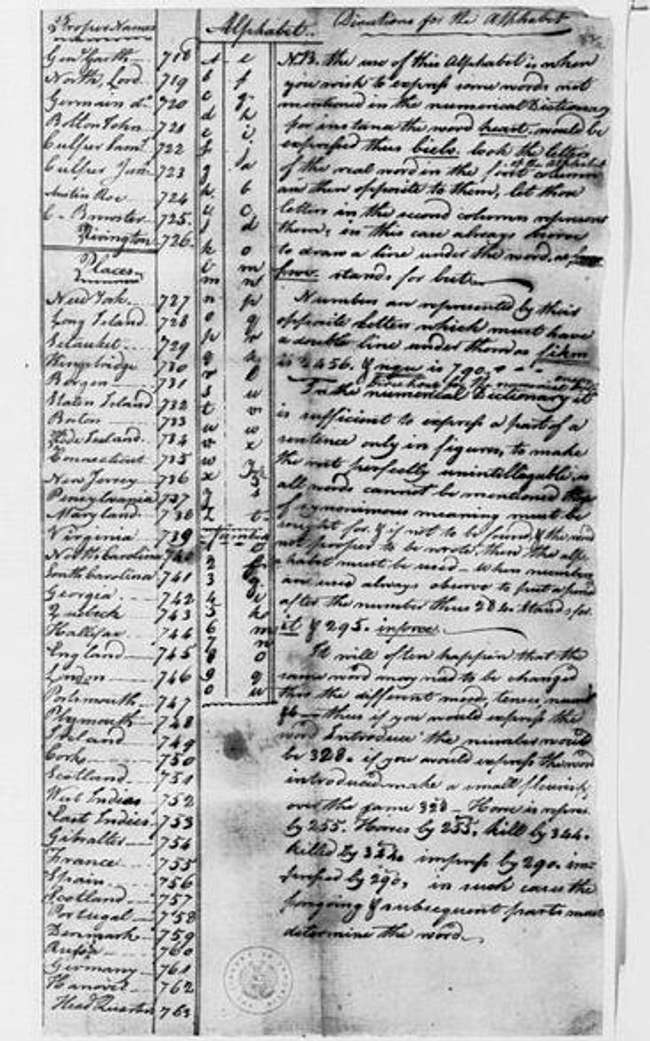 Proper Names
Gen! Garth 718
North Lord 719
Germain do 720
Bolton John 721
Culper Saml. 722
Culper Junr. 723
Austin Roe 724
C. Brewster 725
Rivington 726
Places
New York 727
Long Island 728
Setauket 729
Kingsbridge 730
Bergen 731
Staten Island 732
Boston 733
Rode Iseland 734
Connecticut 735
New Jersey 736
Pensylvania 737
Maryland 738
Virginia 739
North Carolina 740
South Carolina 741
Georgia 742
Quebeck 743
Hallifax 744
England 745
London 746
Portsmouth 747
Plymouth 748
Ireland 749
Cork 750
Scotland 751
West Indies 752
East Indies 753
Gibralter 754
France 755
Spain 756
Scotland 757
Portugal 758
Denmark 759
Russia 760
Germany 761
Hanover 762
Head Quarters 763
Alphabet
a e
b f
c g
d h
e i
f j
g a
h b
i c
j d
k o
l m
m n
n p
o q
p r
q k
r l
s u
t v
u w
v x
w y
x z
y s
z t
Numbers
1 e
2 f
3 g
4 i
5 k
6 m
7 n
8 o
9 q
0 u
Directions for the Alphabet
N.B. the use of this Alphabet is when
you wish to express some words not
mentioned in the numerical Dictionary
for instance the word heart. would be
expressed thus biels. look the letters
of the real word in the first column
of the Alphabet
an then opposite to them, let those
letters in the second column represent
them, in this case always observe
to draw a line under the word, as
fwv. stands for but
Numbers are represented by their
opposite letters which must have
a double line under them as fikm
is 2456. & nqu is 790.
In the numerical Dictionary it
is sufficient to express a part of a
sentence only in figures, to make
the rest perfectly unintellagable, as
all words cannot be mentioned those
of synonimous meaning must be
sought for & if not to be found, & the word
not proper to be wrote, then the alp-
habet must be used — when numbers
are used always observe to put a period
after the number thus 284. stands for
it & 295. inforce.
It will often happen that the
same word may nead to be changed
thro the different moods, tences, numbers
thus if you would express the
word Introduce the number would
be 328. if you would express the word
introduced make a small flourish
over the same 328 — Horse is repres.
by 255. Horses by 255, kill by 344.
killed by 344. impress by 290. im-
pressed by 290, in such cases the
foregoing & subsequent parts must
determine the word